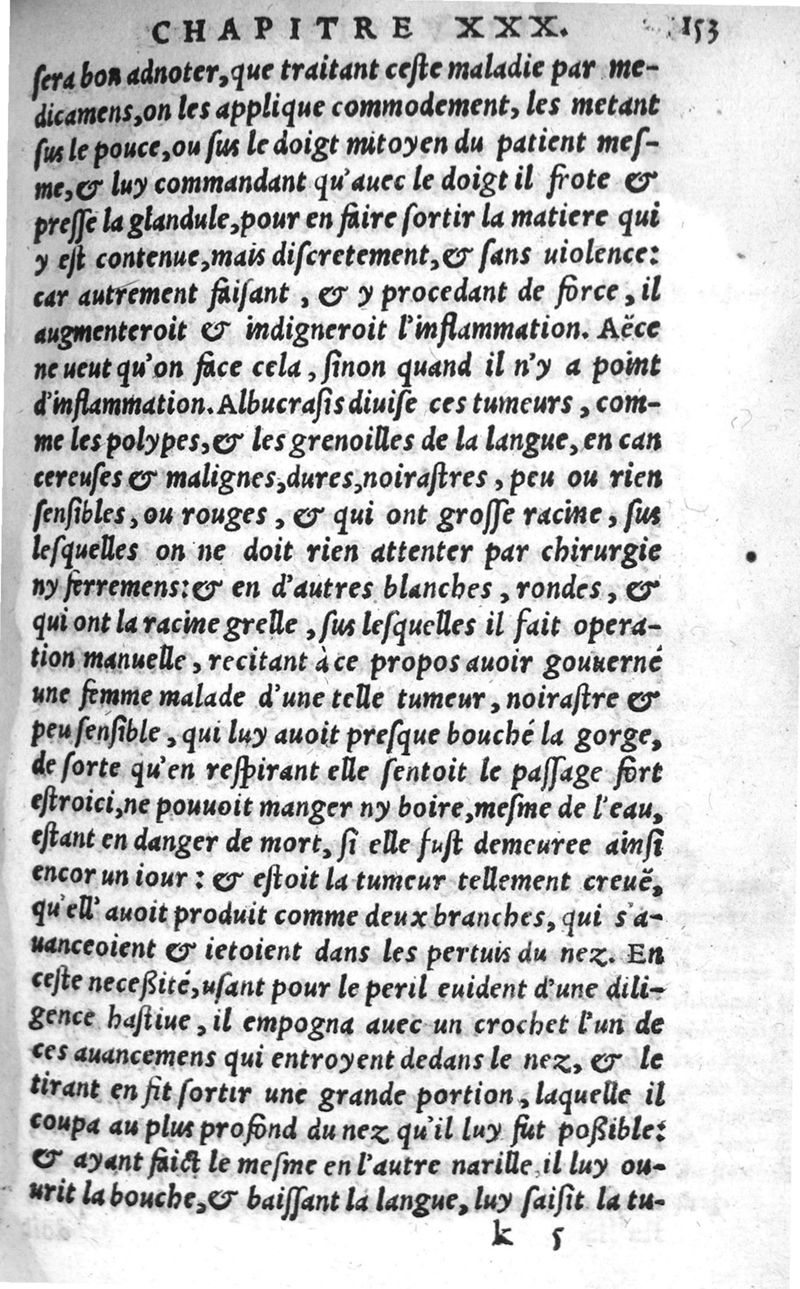 CHAPITRE XXX. 153
ſera bon adnoter, que traitant ceſte maladie par me-
dicamens, on les applique commodement, les metant
ſus le pouce, ou ſus le doigt mitoyen du patient meſ-
me, & luy commandant qu'auec le doigt il frote &
preſſe la glandule, pour en faire ſortir la matiere qui
y eſt contenue, mais diſcretement, & ſans uiolence:
car autrement faiſant, & y procedant de force, il
augmenteroit & indigneroit l'inflammation. Aëce
ne ueut qu'on face cela, ſinon quand il n'y a point
d'inflammation. Albucraſis diuiſe ces tumeurs, com-
me les polypes, & les grenoilles de la langue, en can
cereuſes & malignes, dures, noiraſtres, peu ou rien
ſenſibles, ou rouges, & qui ont groſſe racine, ſus
leſquelles on ne doit rien attenter par chirurgie
ny ferremens: & en d'autres blanches, rondes, &
qui ont la racine grelle, ſus leſquelles il fait opera-
tion manuelle, recitant à ce propos auoir gouuerné
une femme malade d'une telle tumeur, noiraſtre &
peu ſenſible, qui luy auoit preſque bouché la gorge,
de ſorte qu'en reſpirant elle ſentoit le paſſage fort
eſtroici, ne pouuoit manger ny boire, meſme de l'eau,
eſtant en danger de mort, ſi elle fuſt demeuree ainſi
encor un iour: & eſtoit la tumeur tellement creuë,
qu'ell' auoit produit comme deux branches, qui s'a-
uanceoient & ietoient dans les pertuis du nez. En
ceſte neceßité, uſant pour le peril euident d'une dili-
gence haſtiue, il empogna auec un crochet l'un de
ces auancemens qui entroyent dedans le nez, & le
tirant en fit ſortir une grande portion, laquelle il
coupa au plus profond du nez qu'il luy fut poßible:
& ayant faict le meſme en l'autre narille, il luy ou-
urit la bouche, & baiſſant la langue, luy ſaiſit la tu-
k 5